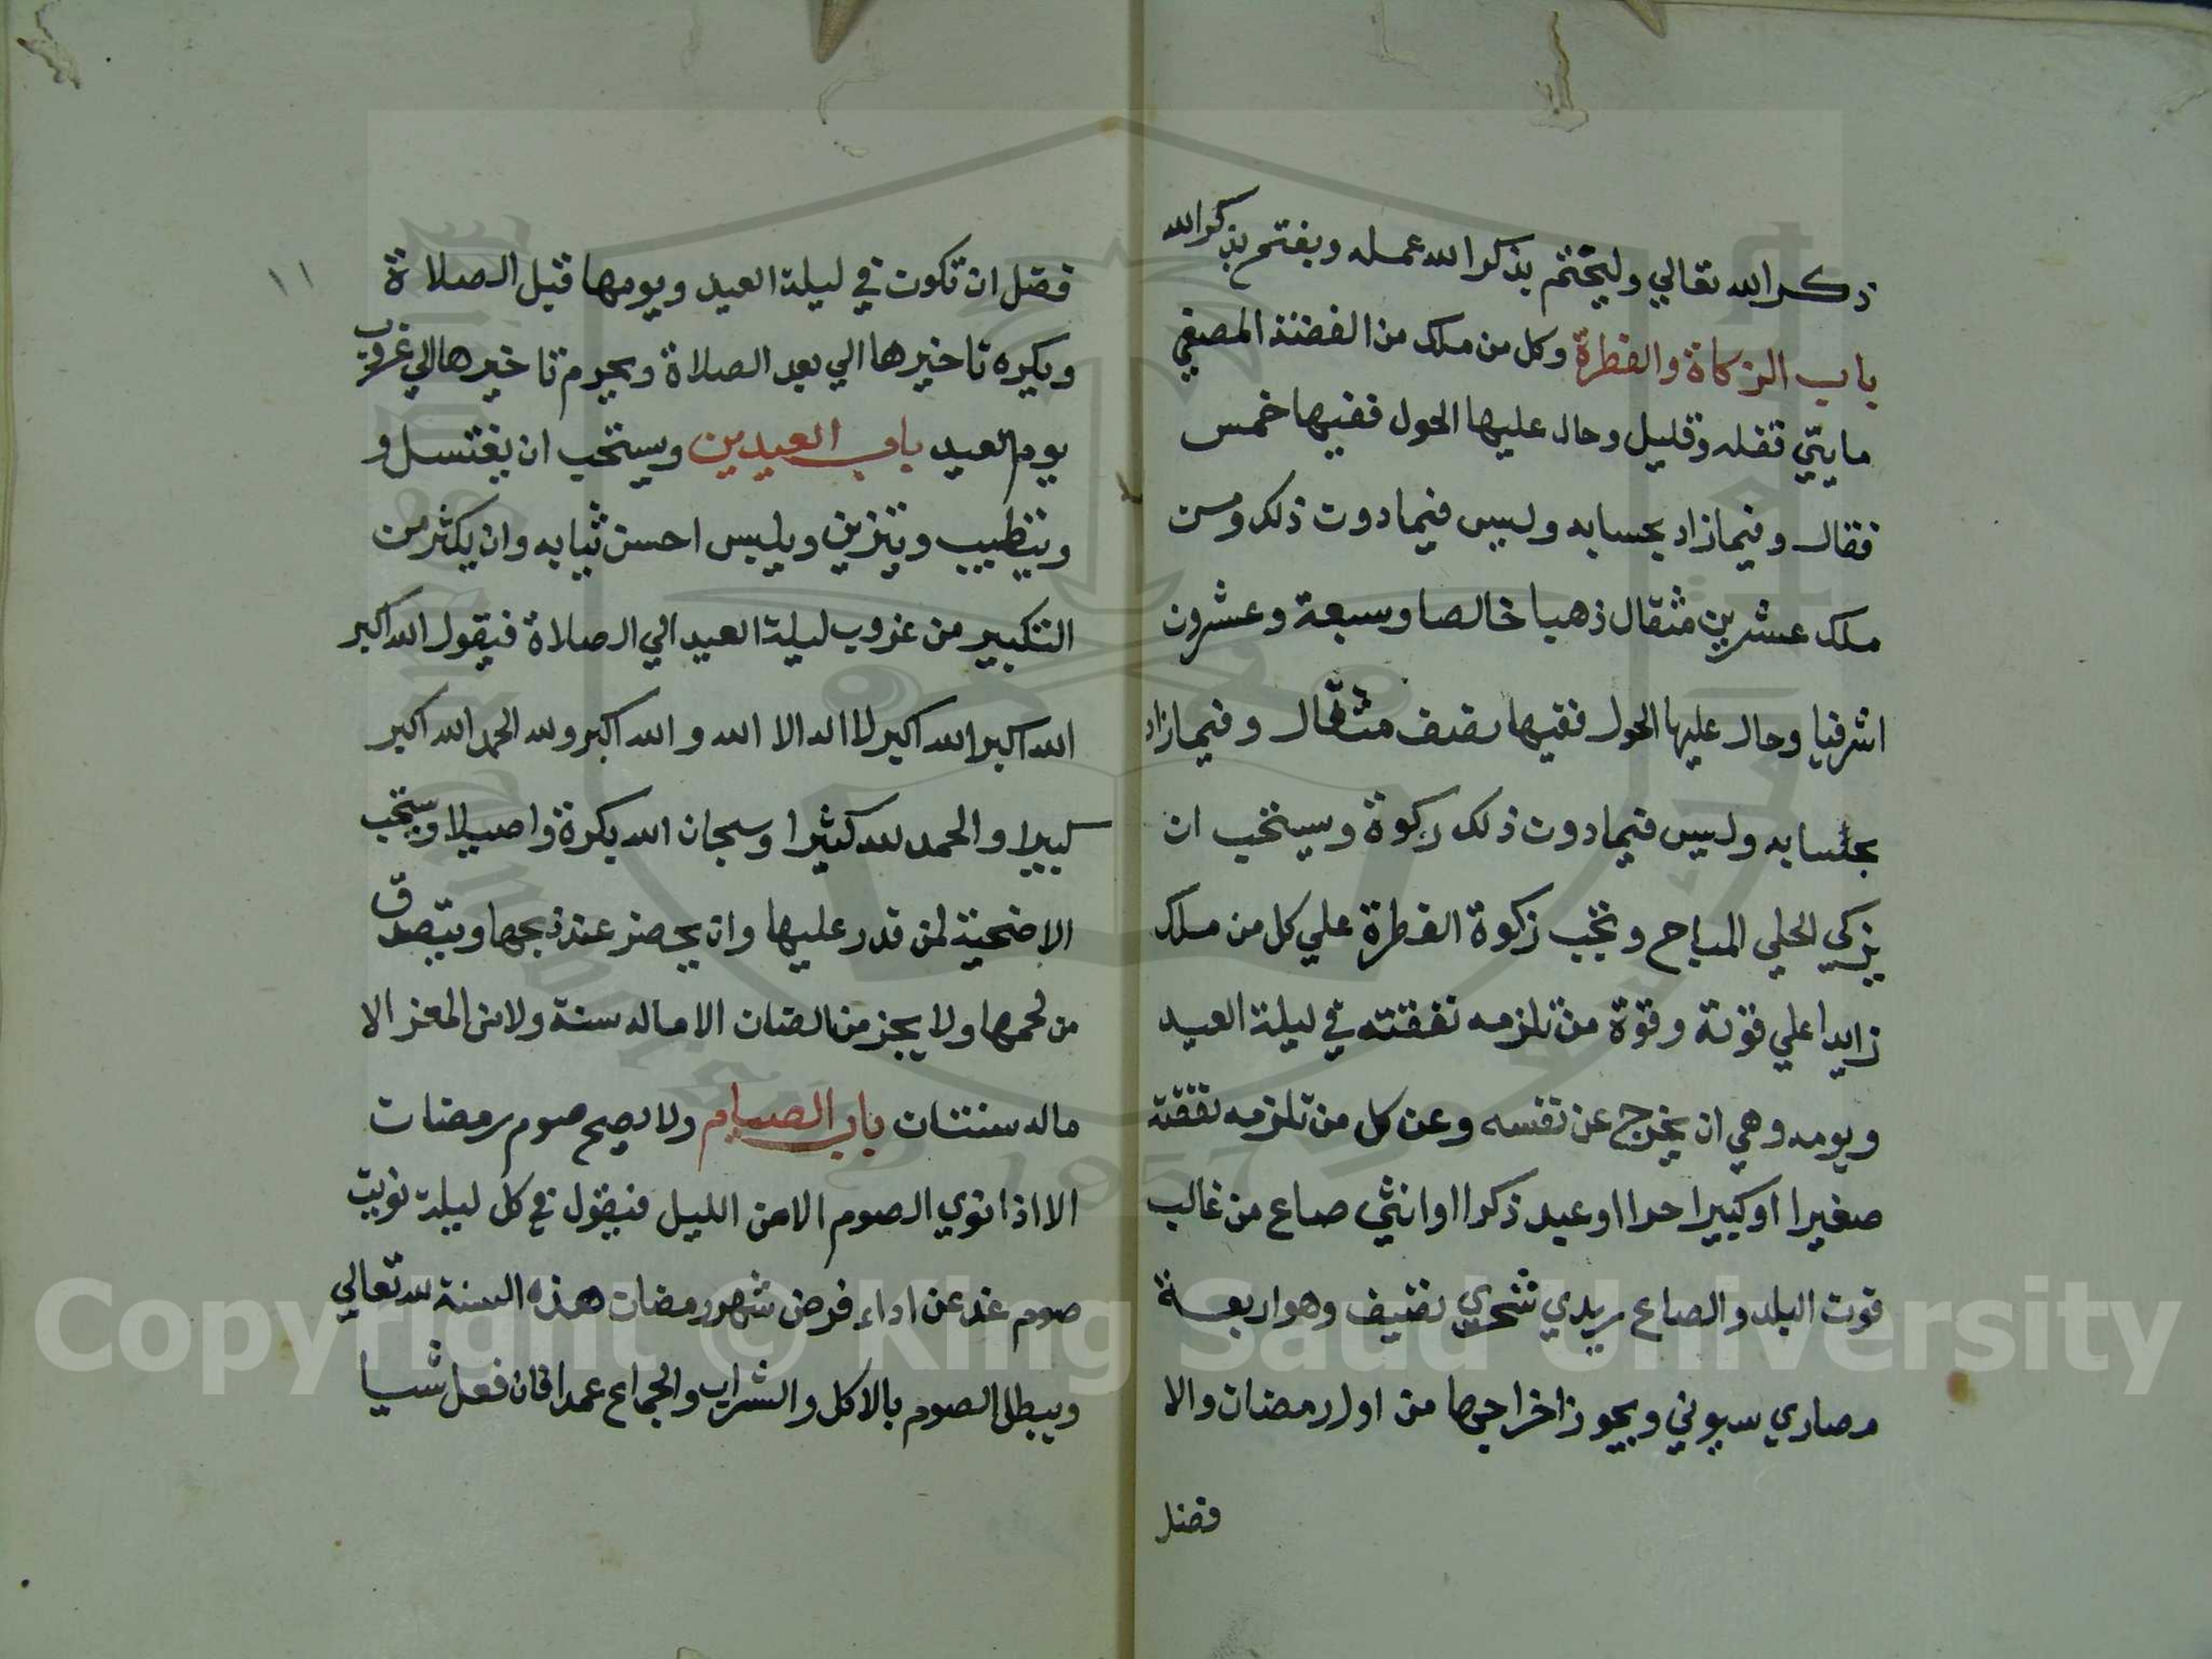 ذكر الله تعالي وليختم بذكر الله عمله ويفتح بذكر الله
باب الزكاة والفطرة وكل من ملك من الفضة المصفي
مايتي قفله وقليل وحال عليها الحول ففيها خمس
فقال وفيما زاد بحسابه وليس فيما دون ذلك ومن
ملك عشرين مثقال ذهبا خالصا وسبعة وعشرون
اشرفيا وحال عليها الحول ففيها نصف مثقال وفيما زاد
بحسابه وليس فيما دون ذلك زكوة ويستحب ان
يزكي الحلي المباح وتجب زكوة الفطرة علي كل من ملك
زايدا علي قوته وقوة من تلزمه نفقته في ليلة العيد
ويومه وهي ان يخرج عن نفسه وعن كل من تلزمه نفقته
صغيرا او كبيرا حرا او عبد ذكرا او انثي صاع من غالب
قوت البلد والصاع بريدي نصيف وهو اربعة
مصاري سيوني ويجوز اخراجها من اول رمضان والا
فضل
١١
فضل ان تكون في ليلة العيد ويومها قبل الصلاة
ويكره تاخيرها الي بعد الصلاة ويحرم تاخيرها الي غروب
يوم العيد باب العيدين ويستحب ان يغتسل و
ويتطيب ويتزين ويلبس احسن ثيابه وان يكثر من
التكبير من غروب ليلة العيد الي الصلاة فيقول الله اكبر
الله اكبر الله اكبر لا اله الا الله والله اكبر ولله الحمد الله اكبر
كبيرا والحمد لله كثيرا وسبحان الله بكرة واصيلا ويستحب
الاضحية لمن قدر عليها وان يحضر عند ذبحها ويتصدق
من لحمها ولا يجز من الضان الا ماله سنة ولا من المعز الا
ماله سنتان باب الصيام ولا يصح صوم رمضان
الا اذا نوي الصوم الا من الليل فيقول في كل ليلة نويت
صوم غد عن اداء فرض شهر رمضان هذه السنة لله تعالي
ويبطل الصوم بالاكل والشراب والجماع عمدا فان فعل شيا
Copyright © King Saud University
1957